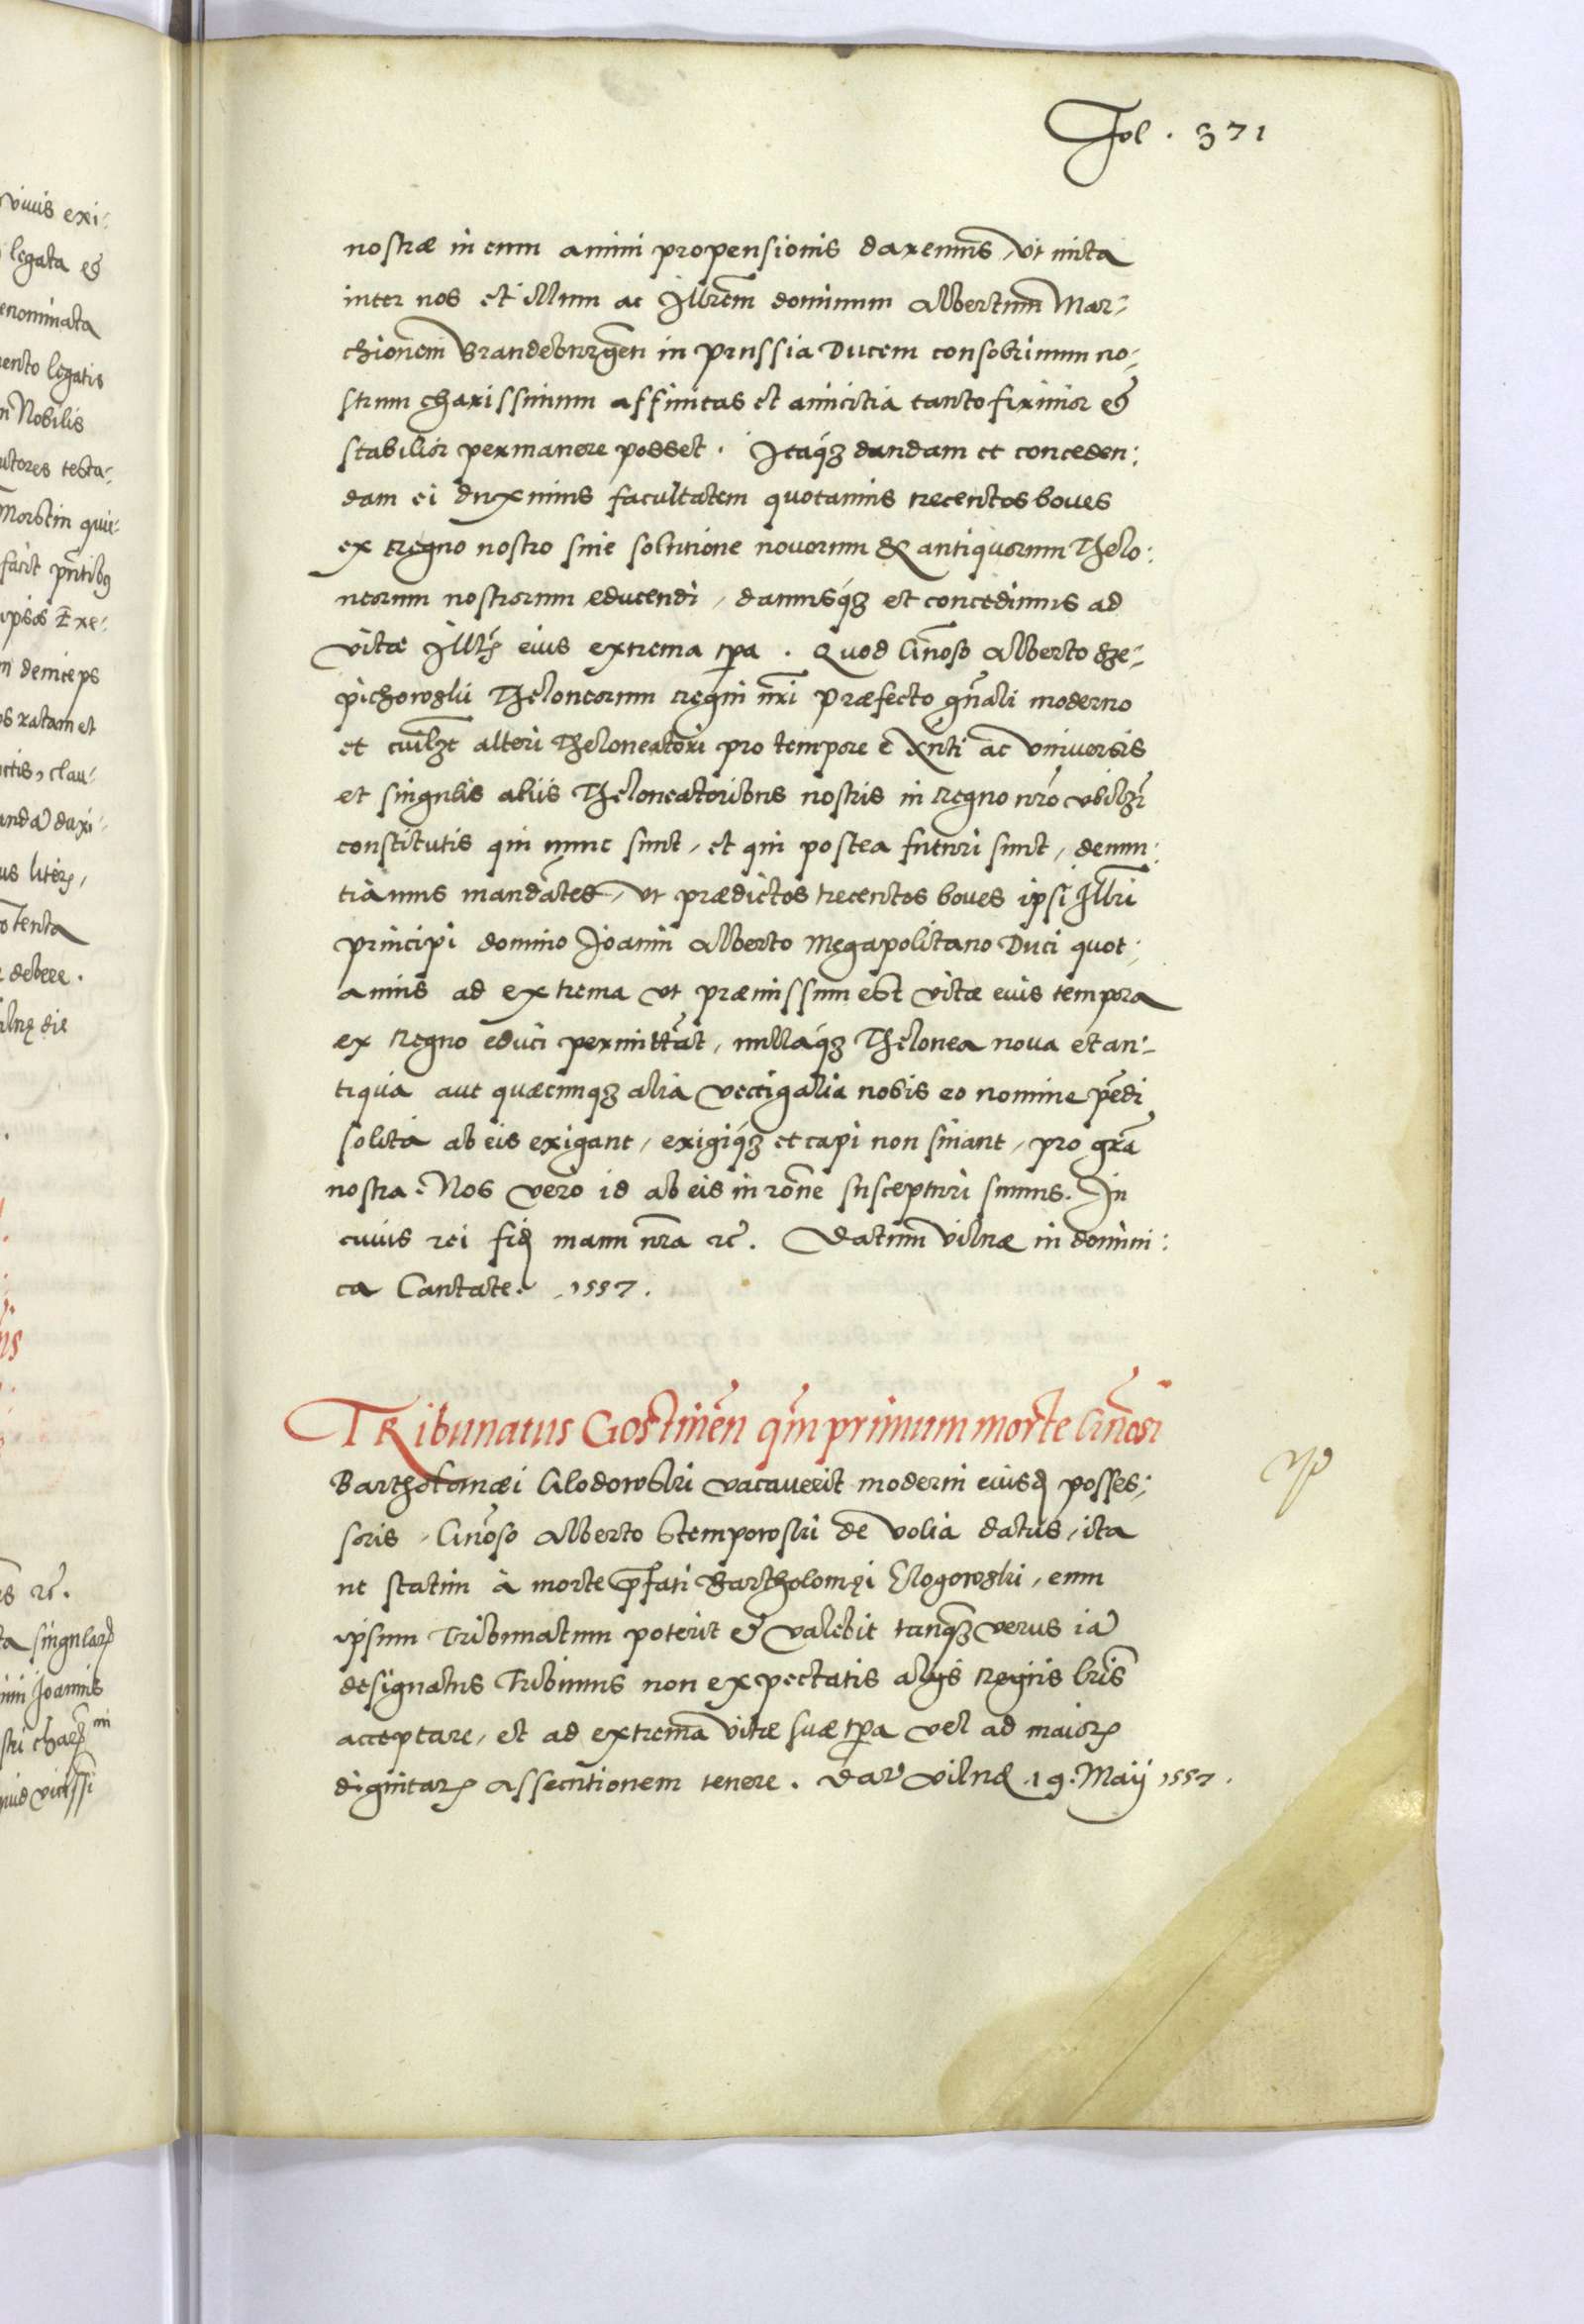 Fol . 371
nostræ in eum animi propensionis daremus, ut inita
inter nos et illum ac Illrem dominum Albertum Mar-
chionem Brandeburgen in Prussia Ducem consobrinum no-
strum charissimum affinitas et amicitia tanto firmior et
stabilior permanere posset . Itaq3 dandam et conceden:
dam ei duximus facultatem quotannis trecentos boves
ex regno nostro sine solutione novorum & antiquorum Thelo:
neorum nostrorum educendi, damusq3 et concedimus ad
vitæ Illtis eius extrema tpa . Quod Gnoso Alberto Sze-
pichowskii Theloneorum regni nri præfecto gnali moderno
et cuilzt alteri Theloneatori pro tempore exnti ac universis
et singulis aliis Theloneatoribus nostris in regno nro ubilzt
constitutis qui nunc sunt, et qui postea futuri sunt, denun:
tiamus mandãtes, ut prædictos trecentos boves ipsi Illri
principi domino Joanni Alberto Megapolitano Duci quot:
annis ad extrema ut præmissum est vitæ eius tempora
ex regno educi permittãt, nullaq3 Thelonea nova et an-
tiqua aut quæcunq3 alia vectigalia nobis eo nomine pẽdi
solita ab eis exigant, exigiq3 et capi non sinant, pro gra
nostra. Nos vero id ab eis in rone suscepturi sumus. In
cuius rei fid manu nra rc. Datum Vilnæ in domini:
ca Cantate. 1557.
Tribunatus Gostinen qm primum morte Gnosi
Bartholomæi Glodowski vacaverit moderni eiusd posses:
soris, Gnoso Alberto Stempowski de Volia datus, ita
ut statim à morte pfati Bartholomęi Glogowski, eum
ipsum Tribunatum poterit et valebit tanq3 verus iã
designatus Tribunus non expectatis alijs regiis lris
acceptare, et ad extrema vitæ suæ tpa vel ad maior
dignitar assecutionem tenere . Dat Vilnæ .19. Maij 1557.